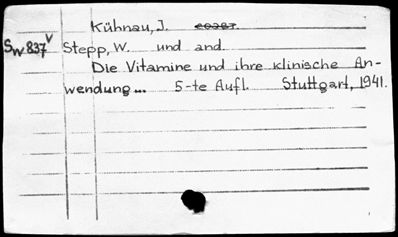 Kühnau, J.
Sw 837v Stepp, W. und and.
Die Vitamine und ihre klinische An-
wendung... 5-te Aufl. Stuttgart, 1941.